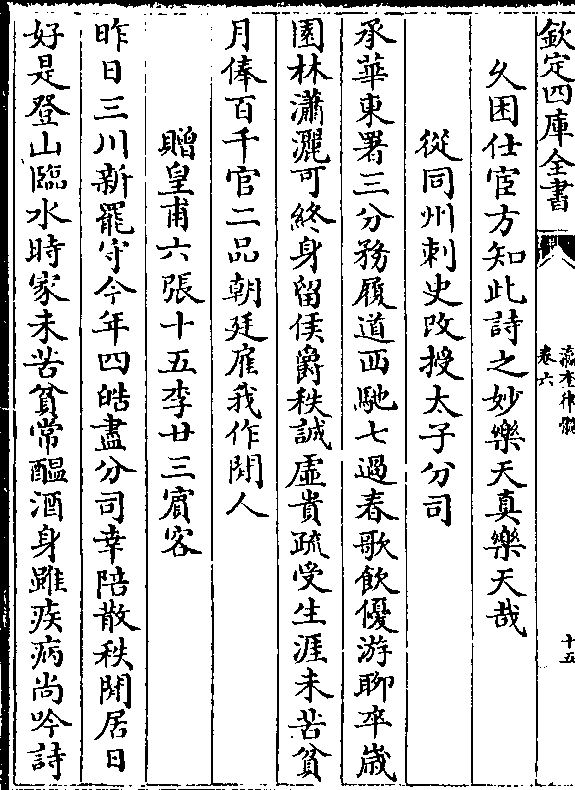 欽定四庫全書
瀛奎律髓
卷六
十五
久困仕宦方知此詩之妙樂天真樂天哉
從同州刺史改授太子分司
承華東署三分務履道西馳七過春歌飲優游聊卒歲
園林瀟灑可終身留侯爵秩誠虛貴疏受生涯未苦貧
月俸百千官二品朝廷雇我作閒人
贈皇甫六張十五李廿三賓客
昨日三川新罷守今年四皓盡分司幸陪散秩閒居日
好是登山臨水時家未苦貧常醖酒身雖疾病尚吟詩